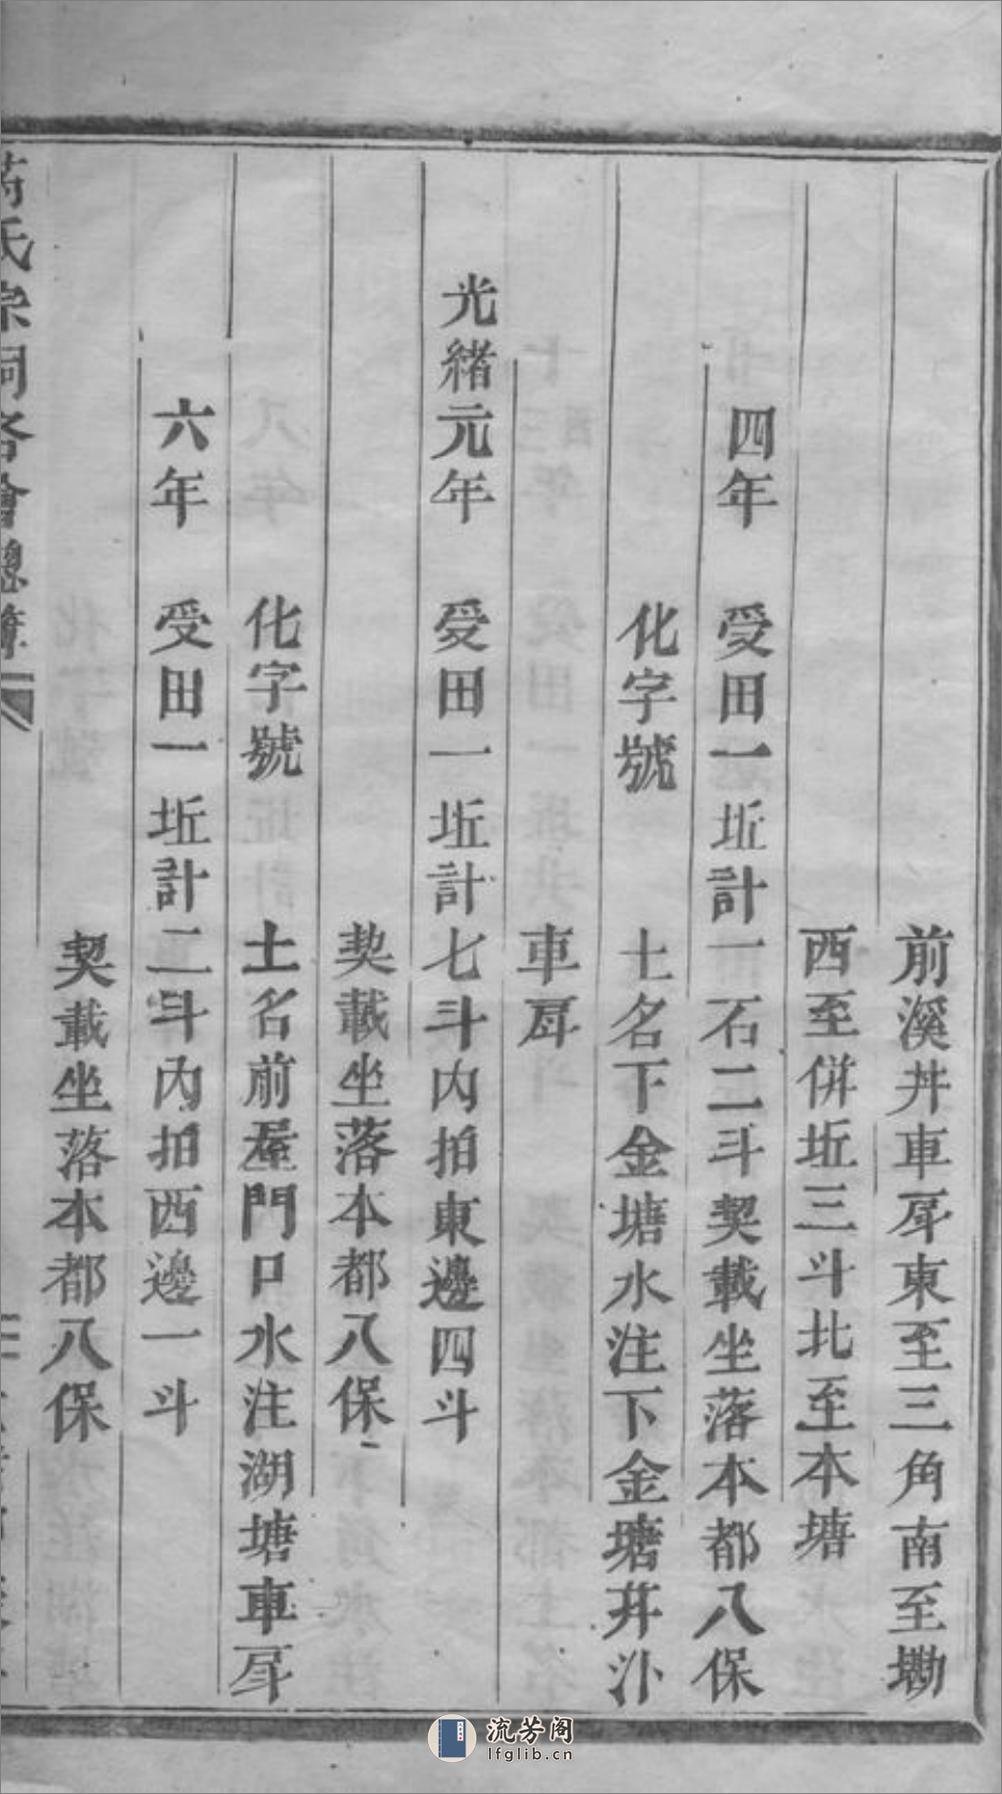 前溪丼車戽東至三角南至墈
西至併坵三斗北至本塘
四年　受田一坵計一石二斗契載坐落本都八保
化字號　土名下金塘水注下金塘丼汴
車戽
光緒元年　受田一坵計七斗內拍東邊四斗
契載坐落本都八保
化字號　土名前屋門口水注湖塘車戽
六年　受田一坵計二斗內拍西邊一斗
契載坐落本都八保
氏宗祠各會總簿
流芳阁
lfglib.cn